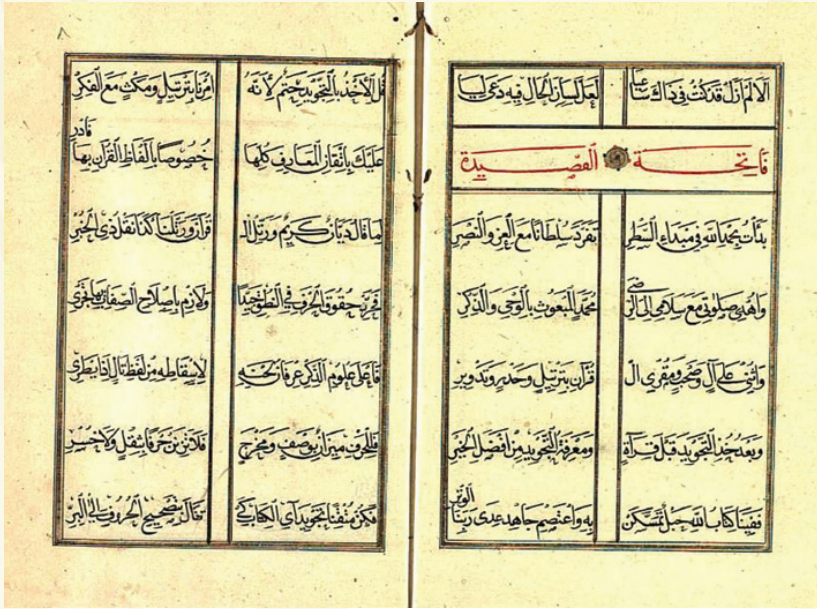 الا لم ازل قد كنت في ذاك ساعيا لعل لسان الحال فيه دعى ليا
فاتحة القصيدة
بدأت بحمد الله في مبداء السطر تفرد سلطانا مع العز والنصر
واهدي صلوتي مع سلامي الى الرضى محمد المبعوث بالوحي والذكر
واثني على آل وصحب ومقرئ ال قرآن بترتيل وحدر وتدوير
وبعد خذ التجويد قبل قرآة ومعرفة التجويد من افضل الخبر
ففينا كتاب الله حبل تمسكن به واعتصم جاهد عدى ربنا الوتر
٨
قل الأخذ بالتجويد حتم لأنه امرنا بترتيل ومكث مع الفكر
عليك باتقان المعارف كلها خصوصا بالفاظ القرآن بها فادر
لما قال ديان كريم ورتل ال قرآن ورتلنا كذا نقل ذي الخبر
فجرد حقوق الحرف في النطق جيدا ولازم باصلاح الصفات بها تجري
علوم الذكر عرفان لحنه لاسقاطه من لفظ تال اذا يطري
فللحرف ميزان بوصف ومخرج فلا تزن حرفا بثقل ولا خسر
فكن متقنا تجويد آي الكتاب كي تنال بتصحيح الحروف الى البر